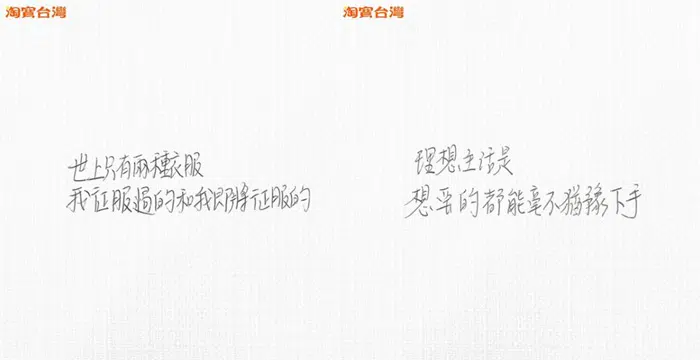 淘寶台灣
世上只有兩種衣服
我征服過的和我即將征服的
淘寶台灣
理想生活是
想要的都能毫不猶豫下手